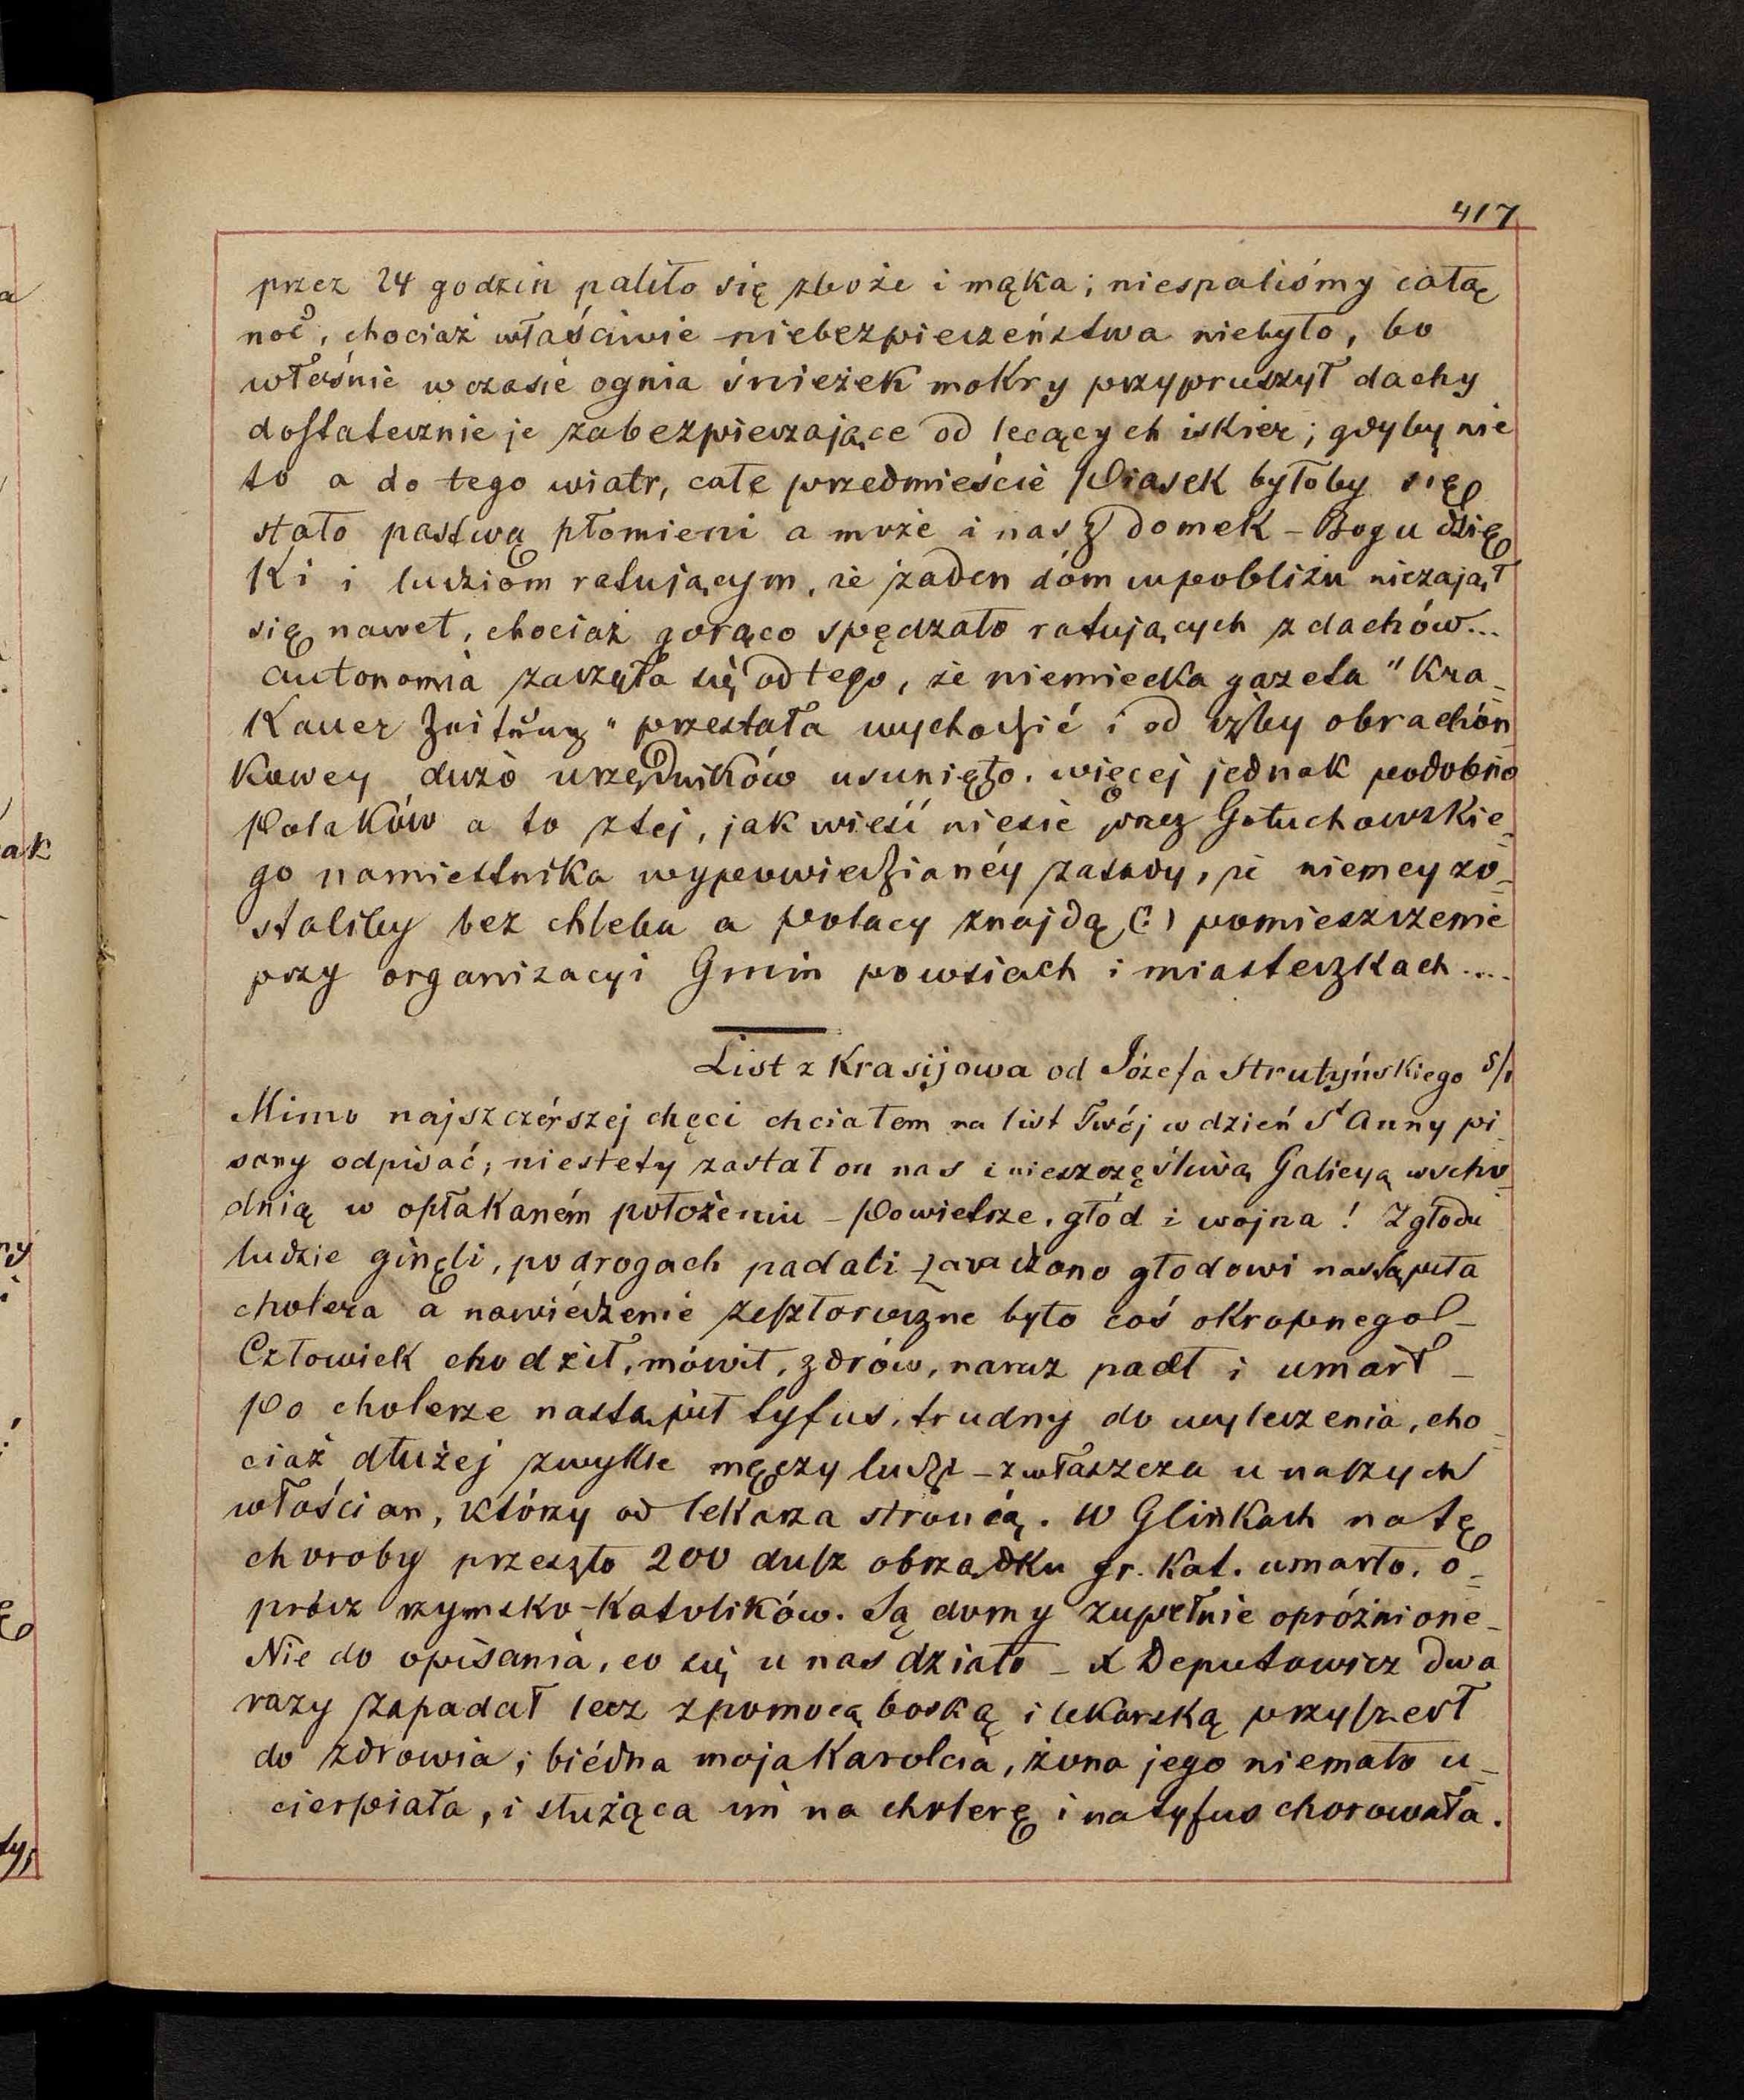 417
przez 24 godzin paliło się zboże i mąka; niespaliśmy całą
noc, chociaż właściwie niebezpieczeństwa niebyło, bo
właśnie w czasie ognia śnieżek mokry przypruszył dachy
dostatecznie je zabezpieczające od lecących iskier; gdyby nie
to a do tego wiatr, całe przedmieście Piasek byłoby się
stało pastwą płomieni a może i nasz domek – Bogu dzię
ki i ludziom ratującym, że żaden dóm wpobliżu niezajął
się nawet, chociaż gorąco spędzało ratujących z dachów...
autonomia zaczęła się od tego, że niemiecka gazeta "Kra-
kauer Zeitung" przestała wychodzić i od izby obrachón
kowey dużo urzędników usunięto. więcej jednak podobno
Polaków a to ztej, jak wieść niesie przez Gołuchowskie-
go namiestnika wypowiedzianéy zasady, że niemcy zo-
staliby bez chleba a polacy znajdą (?) pomieszczenie
przy organizacyi Gmin powsiach i miasteczkach....
List z Krasijowa od Józefa Strutyńskiego 5/1
Mimo najszczérszej chęci chciałem na list Twój w dzień St Anny pi
sany odpisać; niestety zastał on nas i nieszczęśliwą Galicyą wscho
dnią w opłakaném położeniu – Powietrze, głód i wojna! Zgłodu
ludzie ginęli, po drogach padali – zaradzono głodowi nastąpiła
cholera a nawiédzenie zeszłoroczne było coś okropnego! –
Człowiek chodził, mówił, zdrów, naraz padł i umarł –
Po cholerze nastąpił tyfus, trudny do wyleczenia, cho-
ciaż dłużej zwykle męczy ludzi – zwłaszcza u naszych
włościan, którzy od lekarza stronią. W Glinkach na tę
choroby przeszło 200 dusz obrządku gr. kat. umarło, o-
prócz rzymsko-katolików. Są domy zupełnie opróżnione –
Nie do opisania, co się u nas działo – X Deputowicz dwa
razy zapadał lecz z pomocą boską i lekarską przyszedł
do zdrowia; biédna moja Karolcia, żona jego niemało u-
cierpiała, i służąca im na cholerę i na tyfus chorowała.